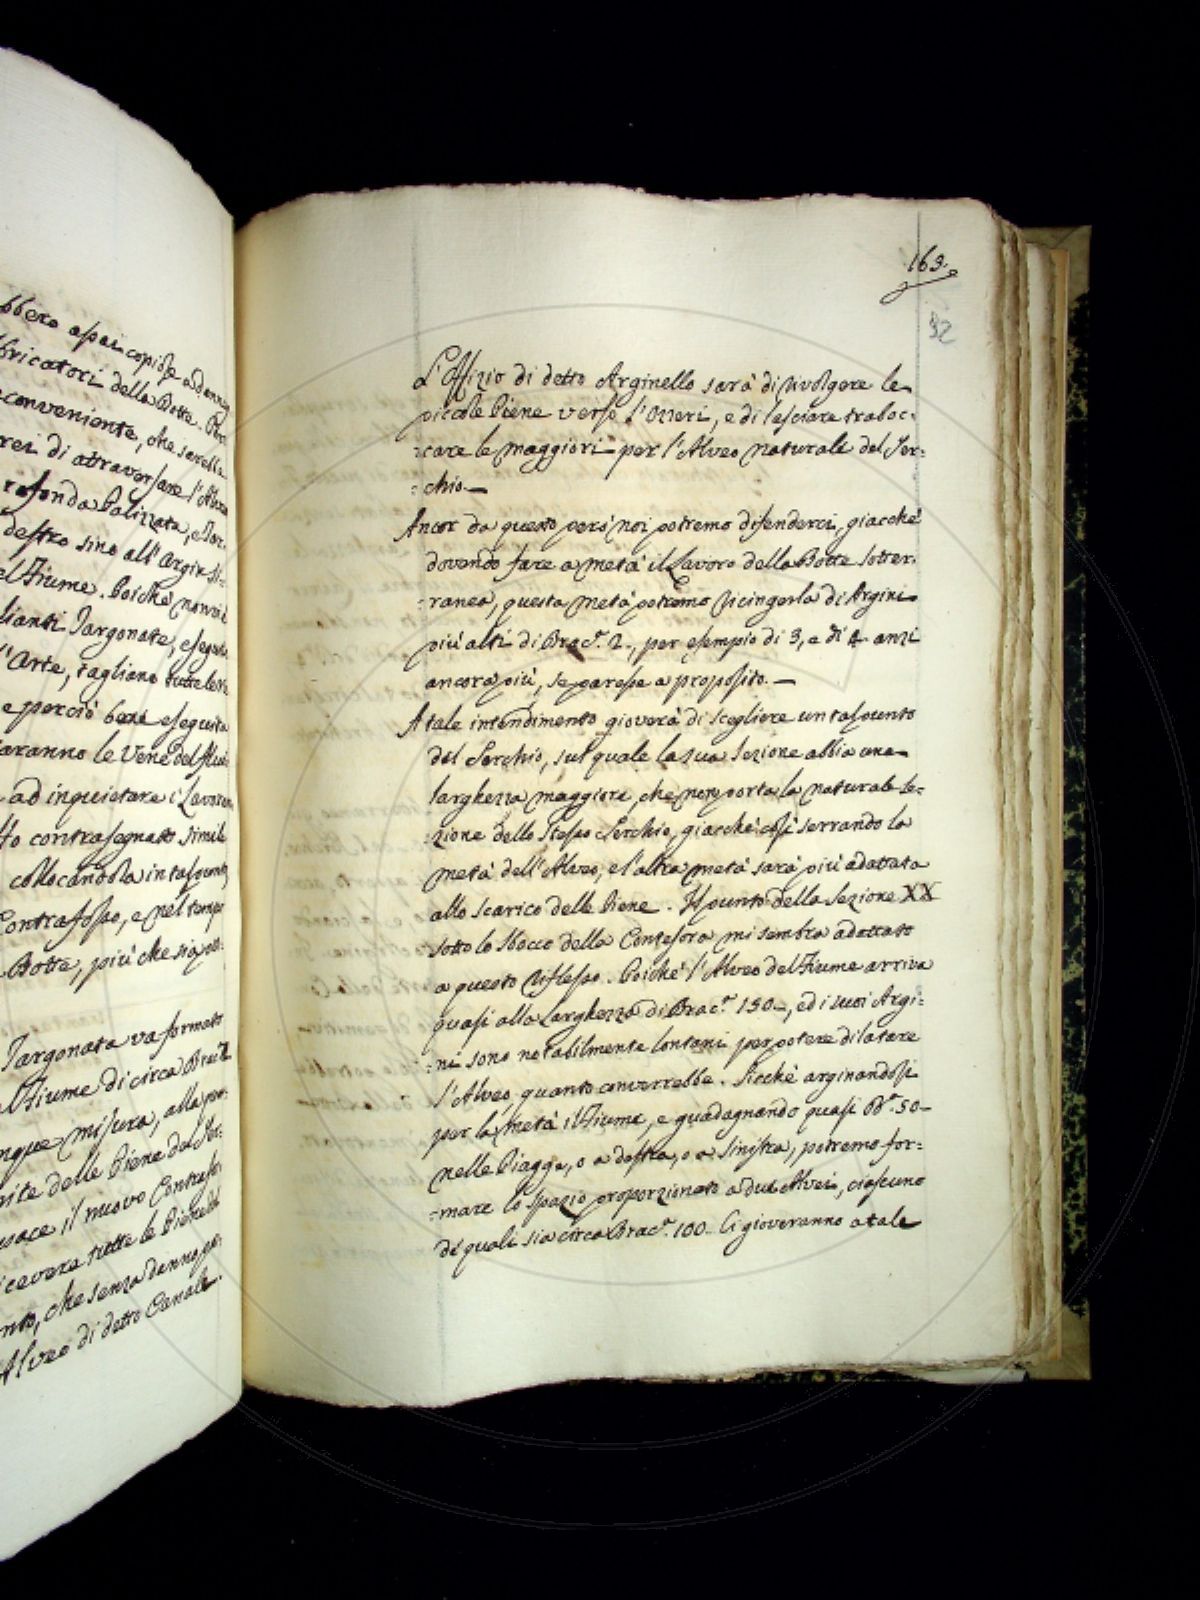 bbero assai copiose a danno
bricatori della Botte. Per
conveniente, che sarebbe
rei di attraversare l'Alveo
rofonda Palizzata, e Tar:
destro sino all'Argin si:
el Fiume. Poiché non vi è
lianti Targonate, eseguite
l'Arte, tagliano tutte le Ve
e perciò bene eseguita
aranno le Vene del Fiu
ad inquietare i Lavoran
tto contrasegnato simile
collocandola in tal punto
Contrafosso, e nel tempo
Botte, più che sia po:
Targonata va formato
al Fiume di circa Brac.ᵃ 2
nque misura, alla por:
nite delle Piene del Ser:
usace il nuovo Contrafos
icevere tutte le Pienelle
nto, che senza danno po:
Alveo di detto Canale.
163.
92
L'Offizio di detto Arginello sarà di rivolgere le
piccole Piene verso l'Ozzeri, e di lasciare traboc:
:care le maggiori per l'Alveo naturale del Ser:
:chio.—
Ancor da questo però noi potremo difenderci, giacchè
dovendo fare a metà il Lavoro della Botte sotter:
:ranea, questa metà potremo ricingerla di Argini
più alti di Brac.ᵃ 2., per esempio di 3, e di 4 anzi
ancora più, se paresse a proposito.—
A tale intendimento gioverà di scegliere un tal punto
del Serchio, sul quale la sua Sezione abbia una
larghezza maggiore, che non porta la naturale Se:
:zione dello stesso Serchio, giacchè così serrando la
metà dell'Alveo, e l'altra metà sarà più adattata
allo scarico delle Piene. Il punto della Sezione XX
sotto lo sbocco della Contesora mi sembra adattato
a questo riflesso. Poichè l'Alveo del Fiume arriva
quasi alla Larghezza di Brac.ᵃ 150., ed i suoi Argi:
:ni sono notabilmente lontani per potere dilatare
l'Alveo, quanto converrebbe. Sicchè arginandosi
per la metà il Fiume, e guadagnando quasi Bᵃ. 50—
nelle Piagge, o a destra, o a sinistra, potremo for:
:mare lo spazio proporzionato a due Alvei, ciascuno
de' quali sia circa Brac.ᵃ 100. Ci gioveranno a tale